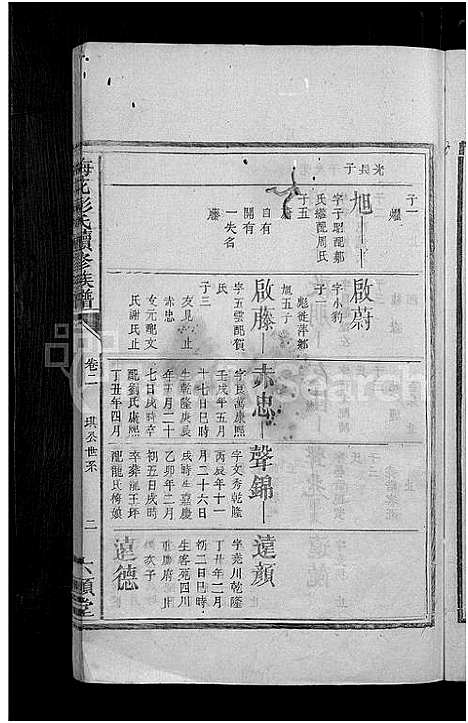 子一
燿
旭
字子昭配鄒
氏繼配周氏
子五
自有
開有
一失名
藤
啟蔚
字小豹
子二
徙萍鄉
旭五子
啟藤
字五雲配賀
氏
子三
友見 止
赤忠
女元配文
氏謝氏止
赤忠
字貞萬康熙
壬戌年五月
十七日巳時
生乾隆庚辰
年五月二十
七日戌時卒
配劉氏康熙
丁丑年四月
聲錦
字文秀乾隆
丙辰年十一
月二十六日
戌時生嘉慶
乙卯年二月
初五日戌時
卒葬龍王坪
配龍氏榜娘
遠顔
字堯川乾隆
丁丑年二月
初二日巳時
生客苑四川
重慶府 止
次子
遠德
梅花彭氏續修族譜
卷二
琪公世系
二
六順堂
Search